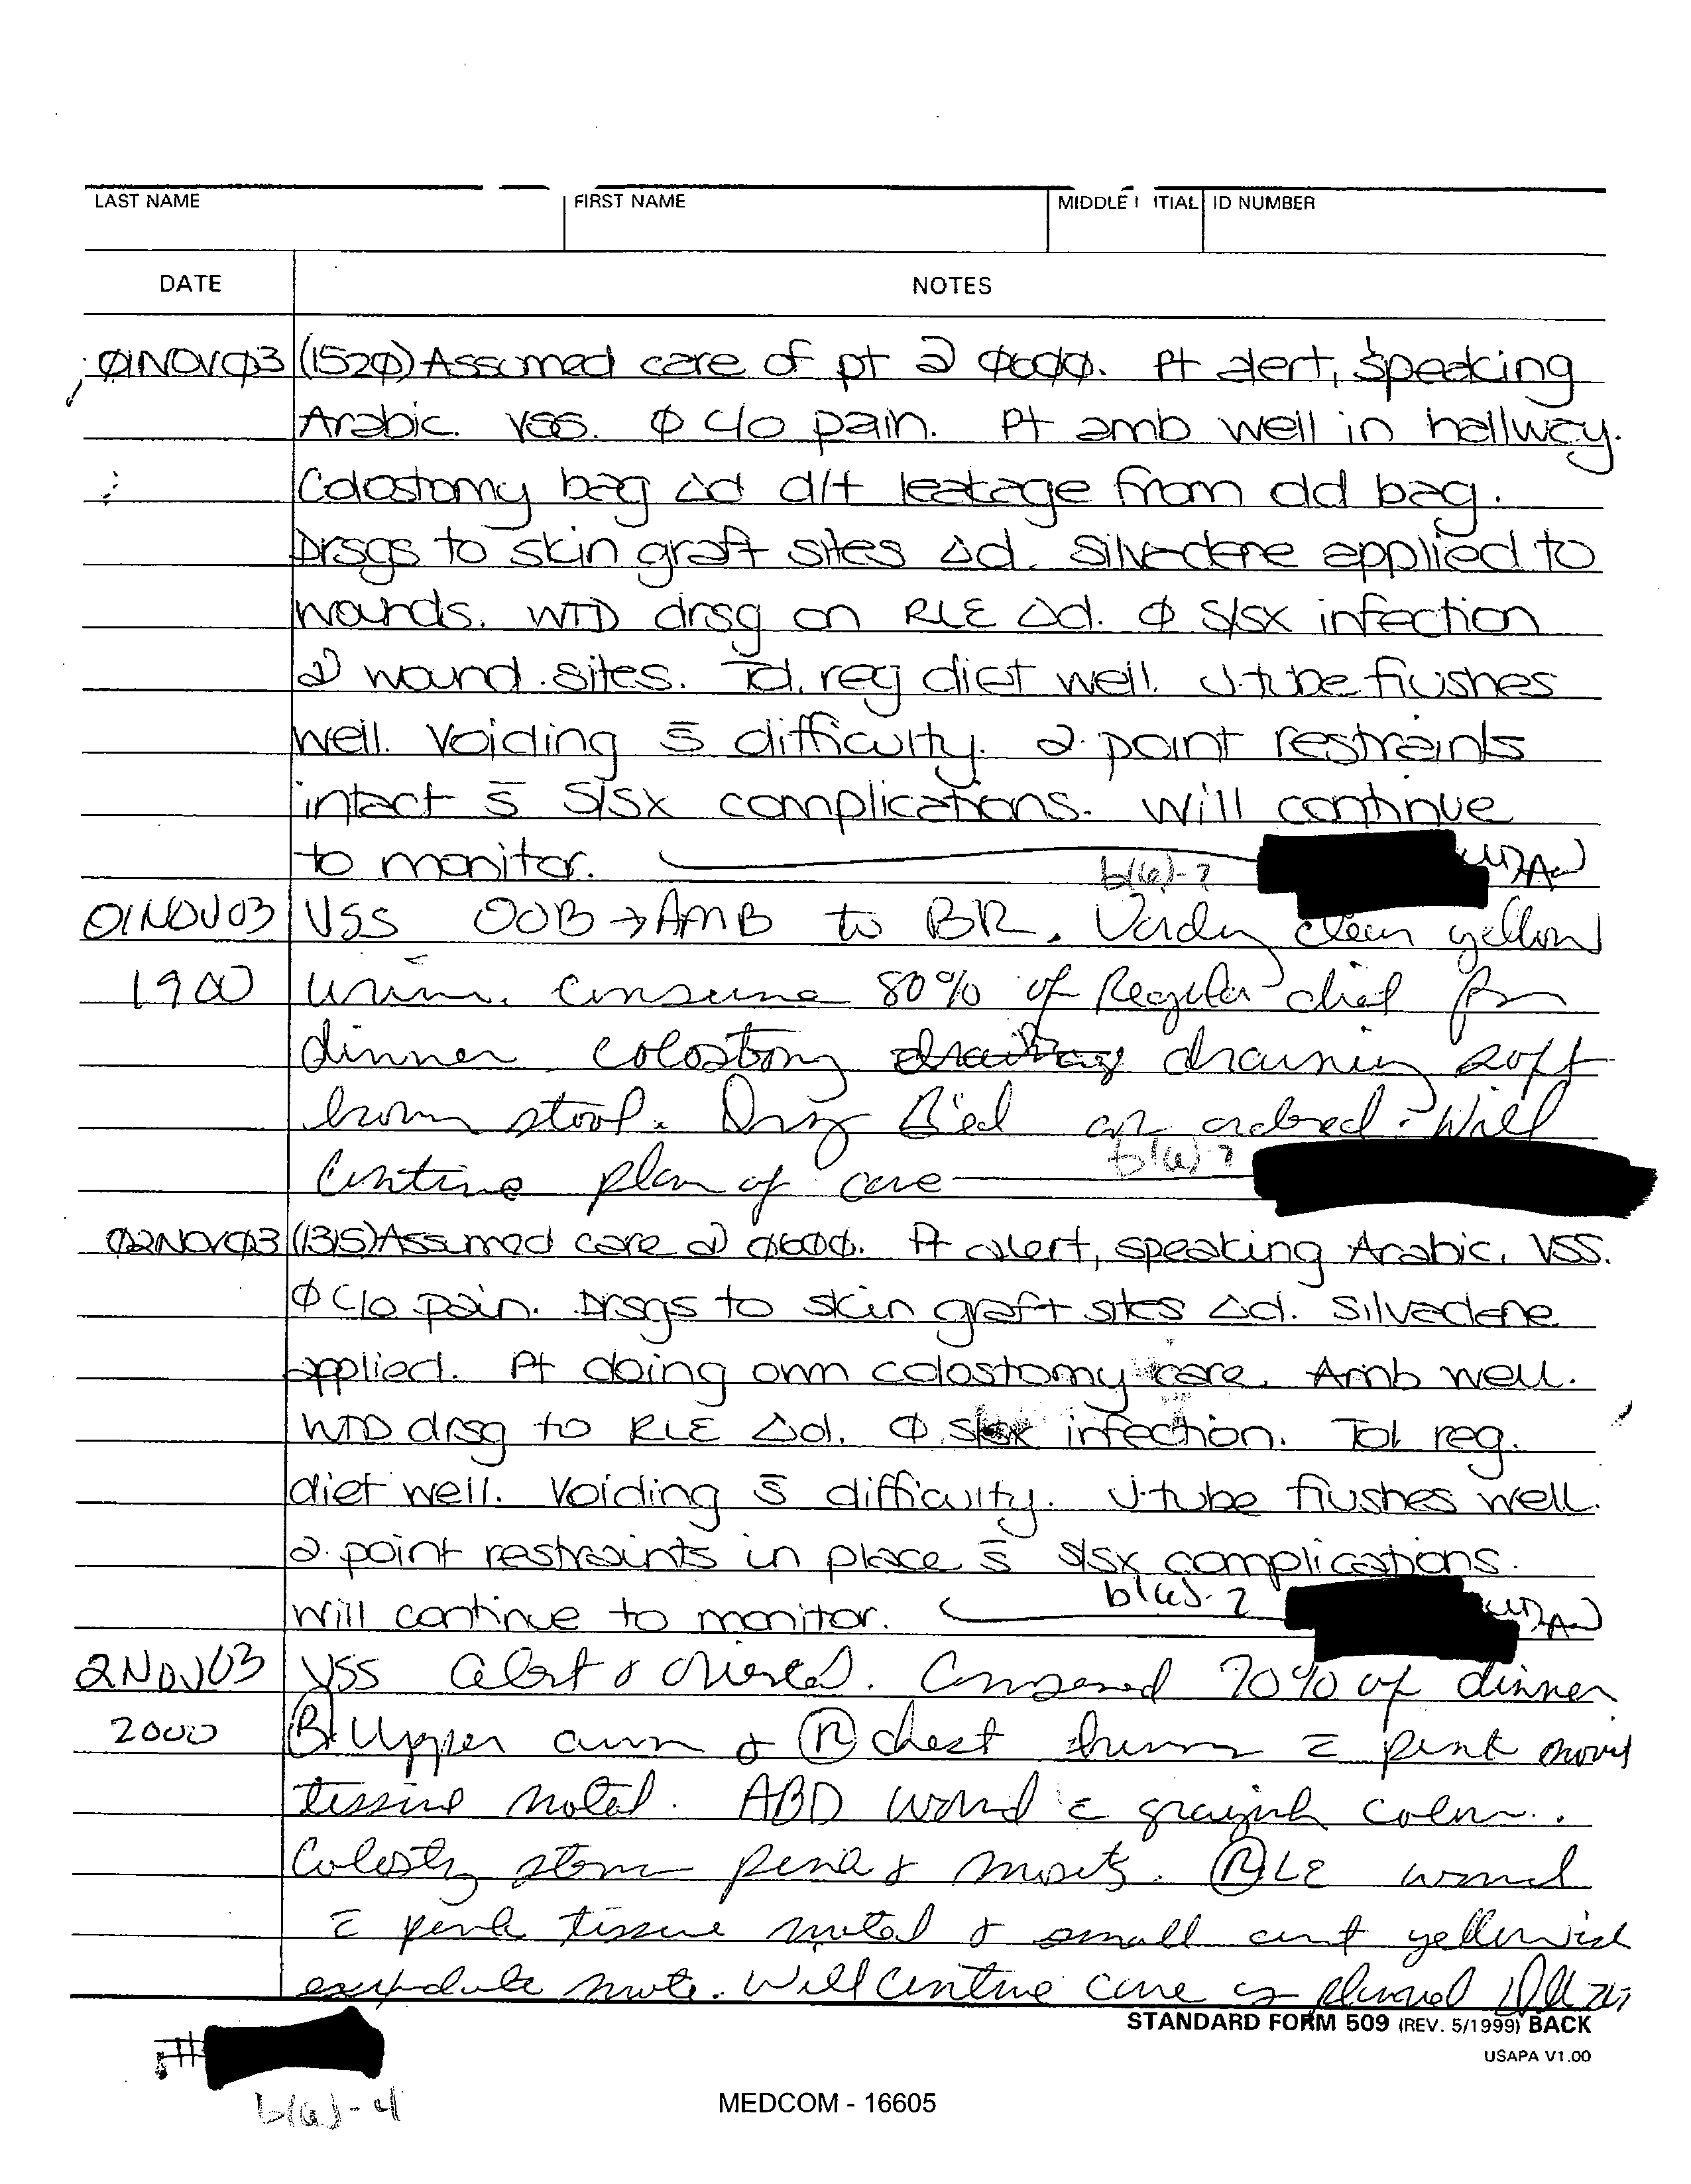 LAST NAME FIRST NAME MIDDLE I ITIAL ID NUMBER
DATE NOTES
01NOV03 (1520) Assumed care of pt @ 0600. Pt alert, speaking
Arabic. VSS. Ø c/o pain. Pt amb well in hallway.
Colostomy bag Δd d/t leakage from old bag.
Drsgs to skin graft sites Δd. Silvadene applied to
wounds. WTD drsg on RLE Δd. Ø s/sx infection
@ wound sites. Tol. reg diet well. J-tube flushes
well. Voiding s̄ difficulty. 2-point restraints
intact s̄ s/sx complications. Will continue
to monitor.
b(6)-2
01NOV03 VSS OOB → AMB to BR. Voiding clear yellow
1900 urine. Consume 80% of Regular diet for
dinner. colostomy draining draining soft
brown stool. Drsg Δ'ed as ordered. Will
continue plan of care
b(6)-2
02NOV03 (1315) Assumed care @ 0600. Pt alert, speaking Arabic. VSS.
Ø c/o pain. Drsgs to skin graft sites Δd. Silvadene
applied. Pt doing own colostomy care. Amb well.
WTD drsg to RLE Δd. Ø s/sx infection. Tol reg.
diet well. Voiding s̄ difficulty. J-tube flushes well.
2-point restraints in place s̄ s/sx complications.
Will continue to monitor.
b(6)-2
2NOV03 VSS alert & oriented. Consumed 70% of dinner
2000 Upper arm & (R) chest c̄ pink moist
tissue noted. ABD wound c̄ grayish color.
Colostomy stoma pink & moist. (R) LE wound
c̄ pink tissue noted & small amt yellowish
exudate note. Will continue care as planned
STANDARD FORM 509 (REV. 5/1999) BACK
USAPA V1.00
#
b(6)-4
MEDCOM - 16605